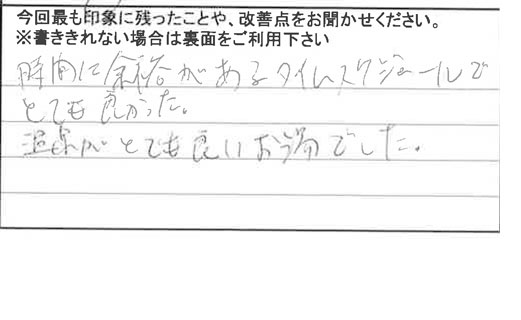 今回最も印象に残ったことや、改善点をお聞かせください。
※書ききれない場合は裏面をご利用下さい
時間に余裕があるタイムスケジュールで
とても良かった。
温泉がとても良いお湯でした。